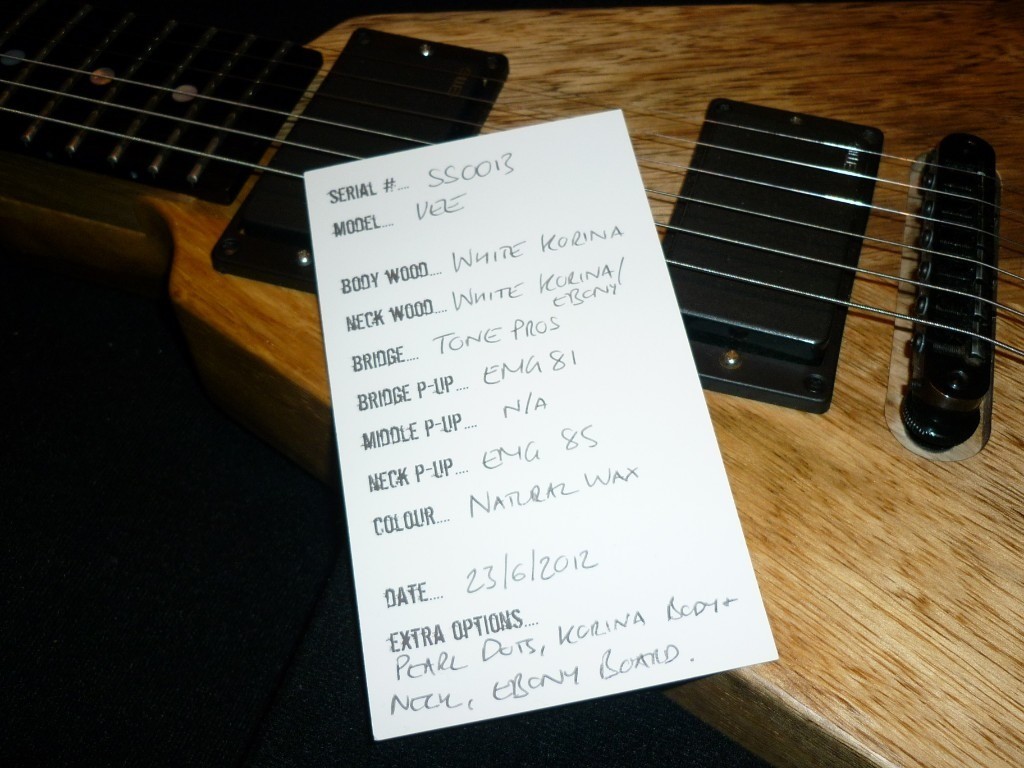 SERIAL #.... SS0013
MODEL.... VEE
BODY WOOD.... WHITE KORINA
NECK WOOD.... WHITE KORINA/
EBONY
BRIDGE.... TONE PROS
BRIDGE P-UP.... EMG 81
MIDDLE P-UP.... N/A
NECK P-UP.... EMG 85
COLOUR.... NATURAL WAX
DATE.... 23/6/2012
EXTRA OPTIONS....
PEARL DOTS, KORINA BODY +
NECK, EBONY BOARD.